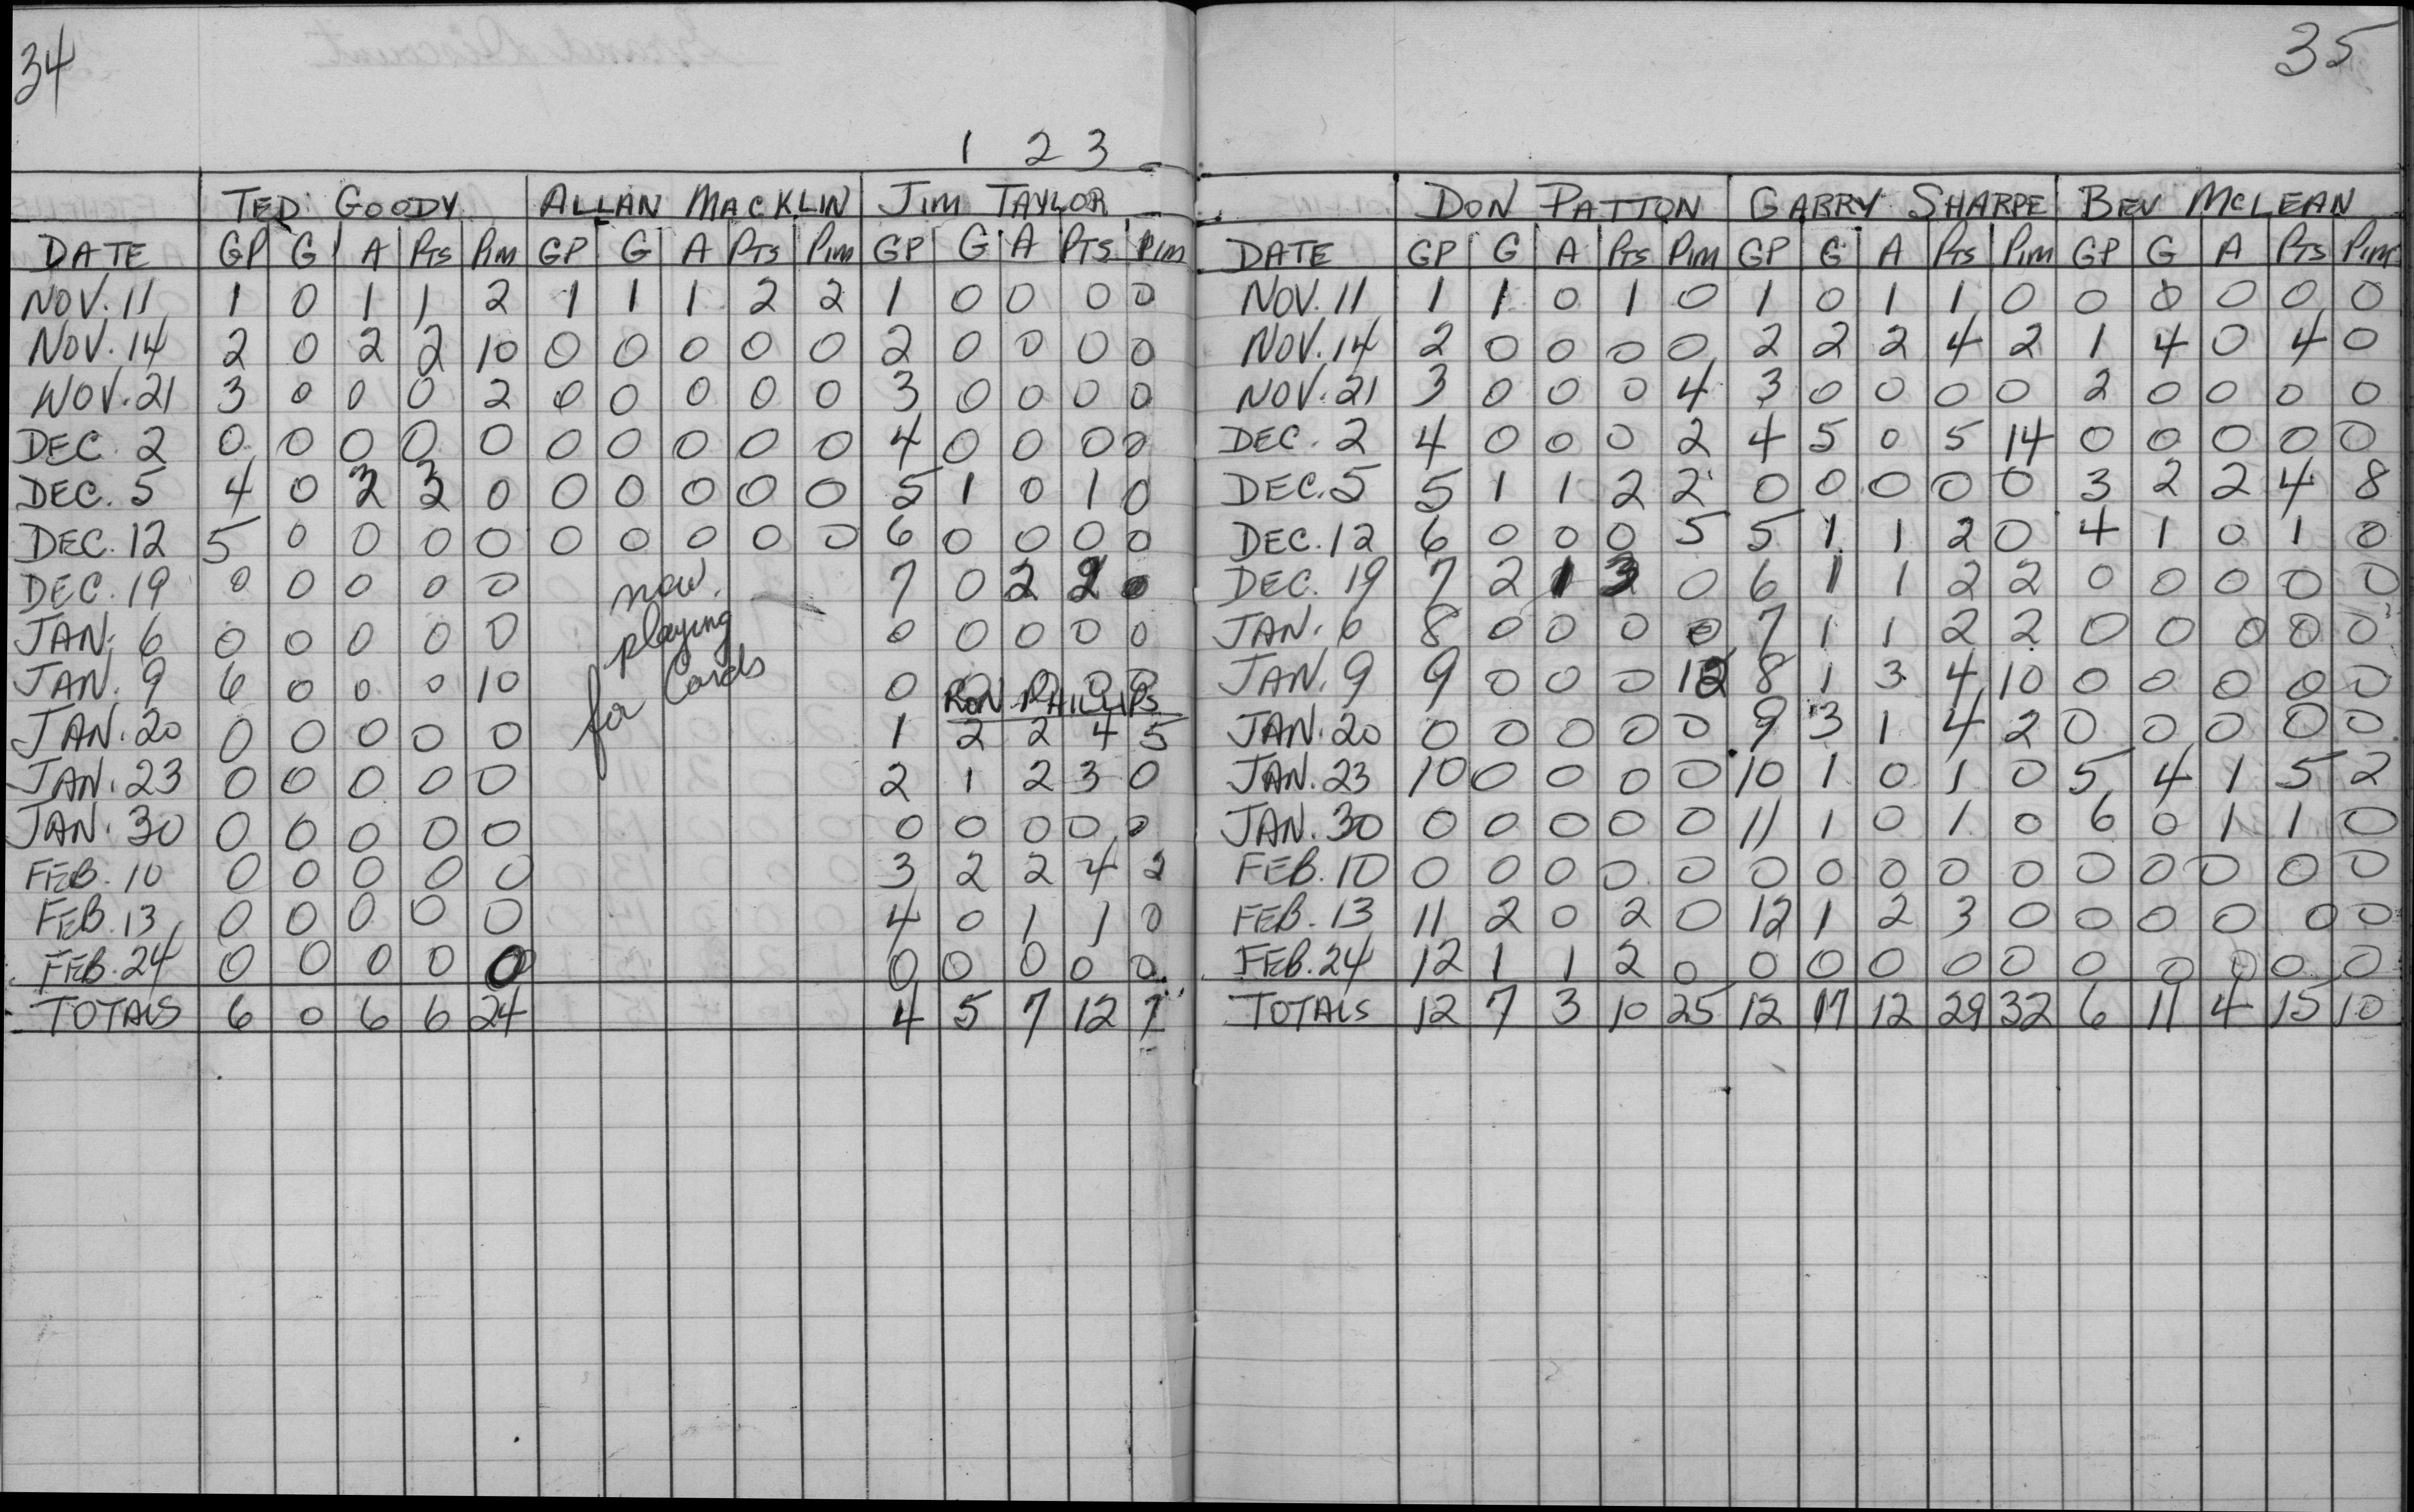 34
1 2 3
TED GOODY ALLAN MACKLIN JIM TAYLOR
DATE GP G A Pts Pim GP G A Pts Pim GP G A PTS PIM
NOV. 11 1 0 1 1 2 1 1 1 2 2 1 0 0 0 0
NOV. 14 2 0 2 2 10 0 0 0 0 0 2 0 0 0 0
NOV. 21 3 0 0 0 2 0 0 0 0 0 3 0 0 0 0
DEC. 2 0 0 0 0 0 0 0 0 0 0 4 0 0 0 0
DEC. 5 4 0 3 3 0 0 0 0 0 0 5 1 0 1 0
DEC. 12 5 0 0 0 0 0 0 0 0 0 6 0 0 0 0
DEC. 19 0 0 0 0 0 now 7 0 2 2 0
JAN. 6 0 0 0 0 0 playing 0 0 0 0 0
JAN. 9 6 0 0 0 10 for Cards 0 0 0 0 0
RON PHILLIPS
JAN. 20 0 0 0 0 0 1 2 2 4 5
JAN. 23 0 0 0 0 0 2 1 2 3 0
JAN. 30 0 0 0 0 0 0 0 0 0 0
FEB. 10 0 0 0 0 0 3 2 2 4 2
FEB. 13 0 0 0 0 0 4 0 1 1 0
FEB. 24 0 0 0 0 0 0 0 0 0 0
TOTALS 6 0 6 6 24 4 5 7 12 7
35
DON PATTON GARRY SHARPE BEV MCLEAN
DATE GP G A Pts Pim GP G A Pts Pim GP G A Pts Pim
NOV. 11 1 1 0 1 0 1 0 1 1 0 0 0 0 0 0
NOV. 14 2 0 0 0 0 2 2 2 4 2 1 4 0 4 0
NOV. 21 3 0 0 0 4 3 0 0 0 0 2 0 0 0 0
DEC. 2 4 0 0 0 2 4 5 0 5 14 0 0 0 0 0
DEC. 5 5 1 1 2 2 0 0 0 0 0 3 2 2 4 8
DEC. 12 6 0 0 0 5 5 1 1 2 0 4 1 0 1 0
DEC. 19 7 2 1 3 0 6 1 1 2 2 0 0 0 0 0
JAN. 6 8 0 0 0 0 7 1 1 2 2 0 0 0 0 0
JAN. 9 9 0 0 0 12 8 1 3 4 10 0 0 0 0 0
JAN. 20 0 0 0 0 0 9 3 1 4 2 0 0 0 0 0
JAN. 23 10 0 0 0 0 10 1 0 1 0 5 4 1 5 2
JAN. 30 0 0 0 0 0 11 1 0 1 0 6 0 1 1 0
FEB. 10 0 0 0 0 0 0 0 0 0 0 0 0 0 0 0
FEB. 13 11 2 0 2 0 12 1 2 3 0 0 0 0 0 0
FEB. 24 12 1 1 2 0 0 0 0 0 0 0 0 0 0 0
TOTALS 12 7 3 10 25 12 17 12 29 32 6 11 4 15 10